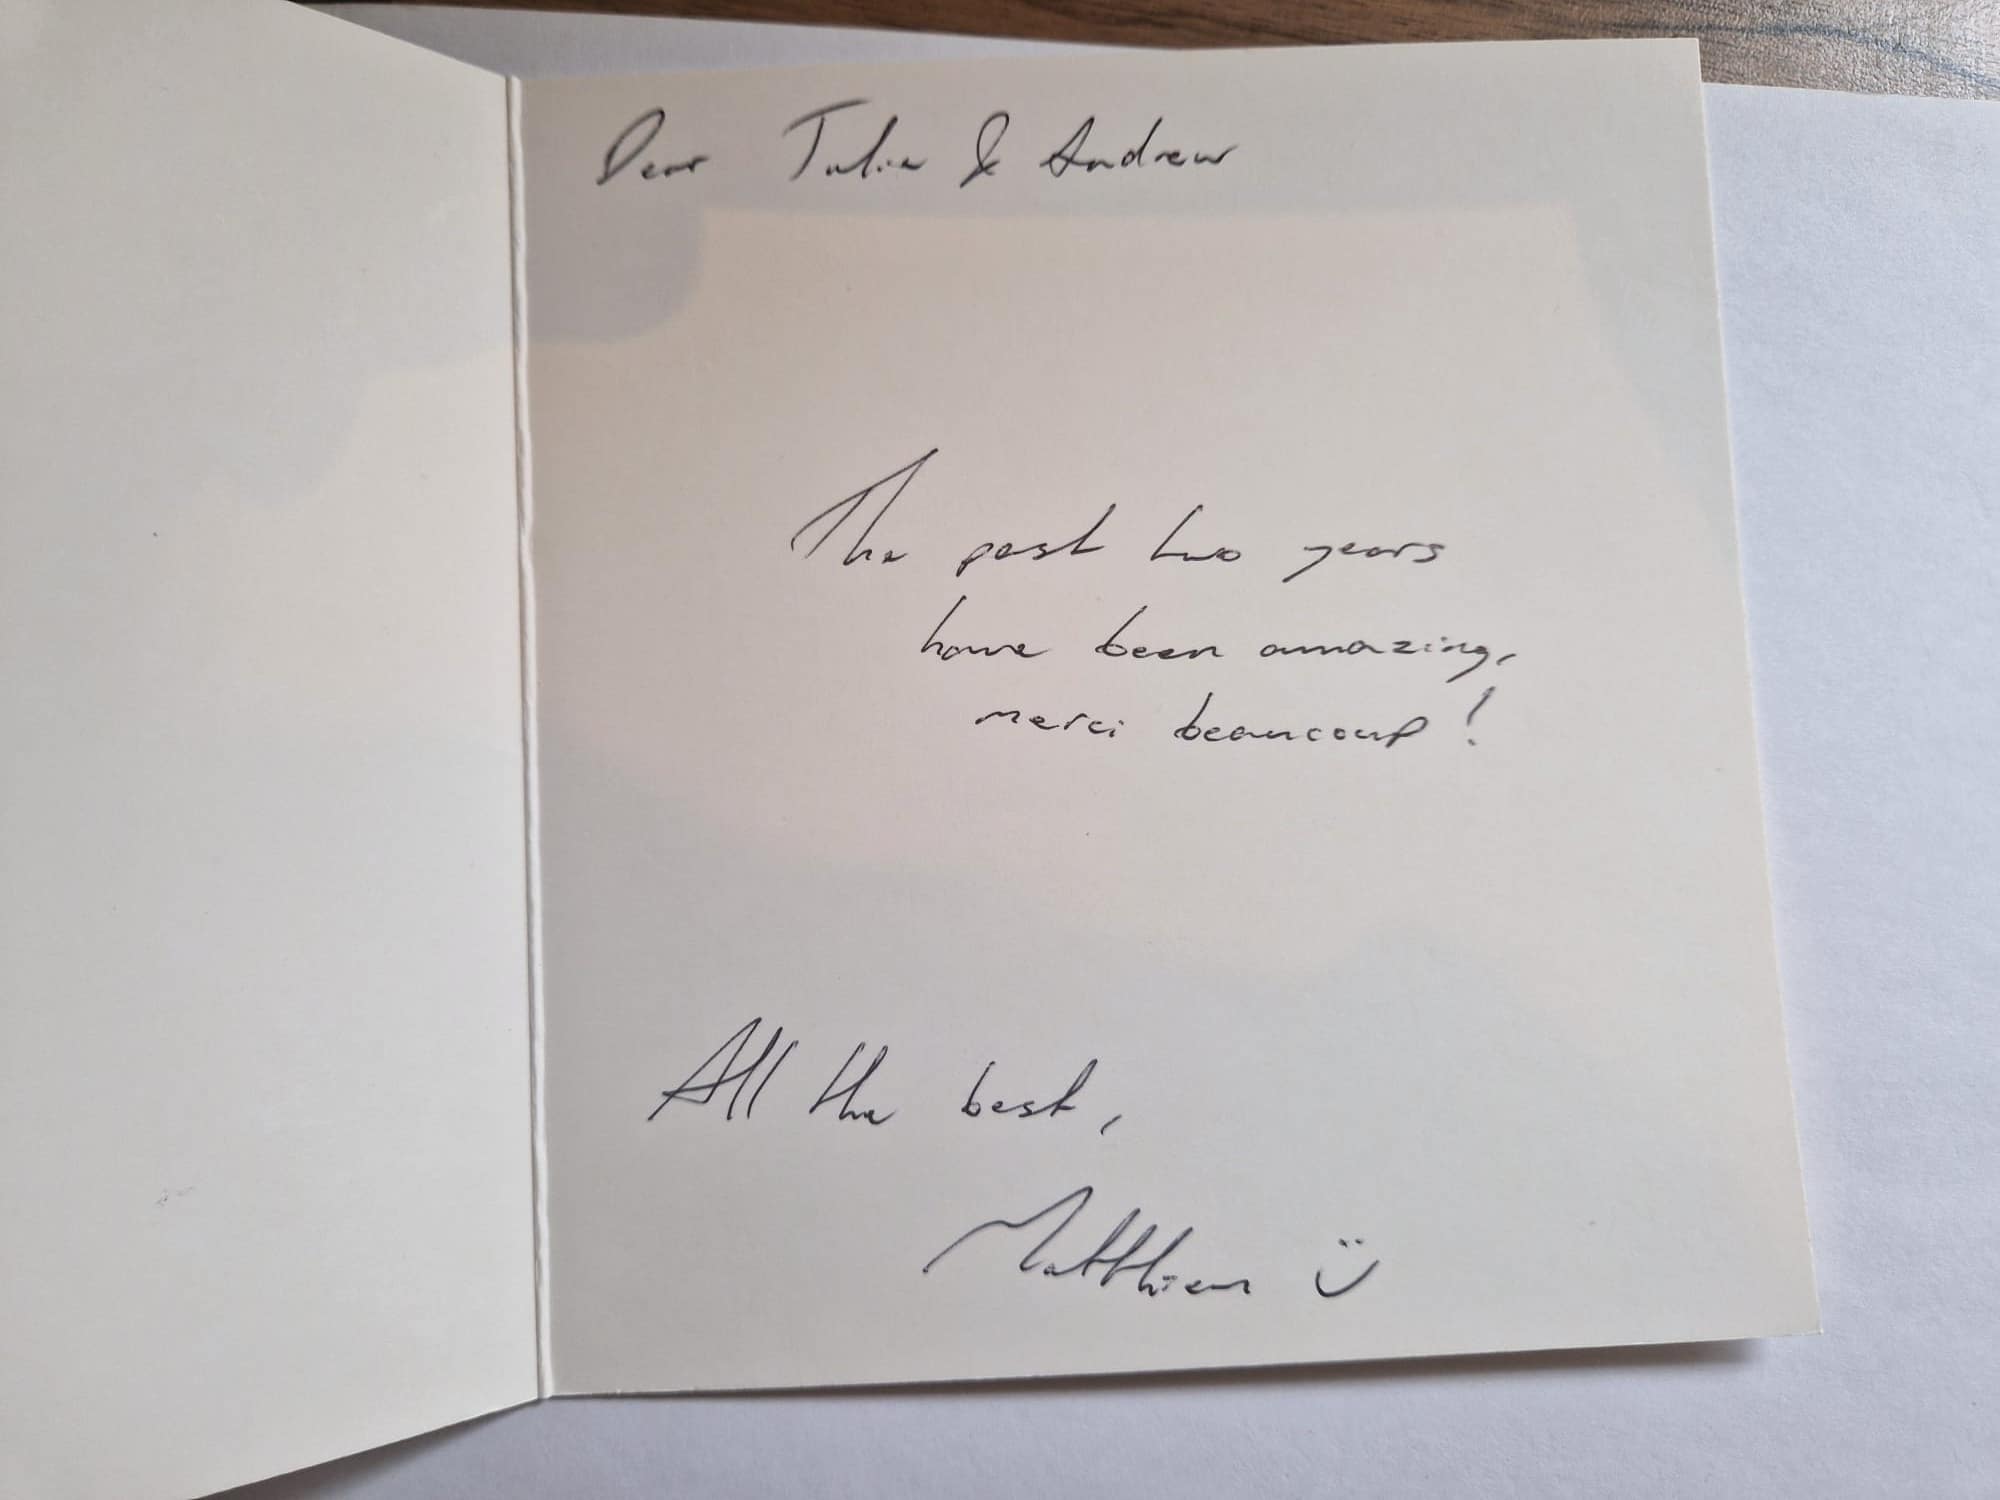 Dear Julia & Andrew
The past two years
have been amazing,
merci beaucoup!
All the best,
Matthieu :)